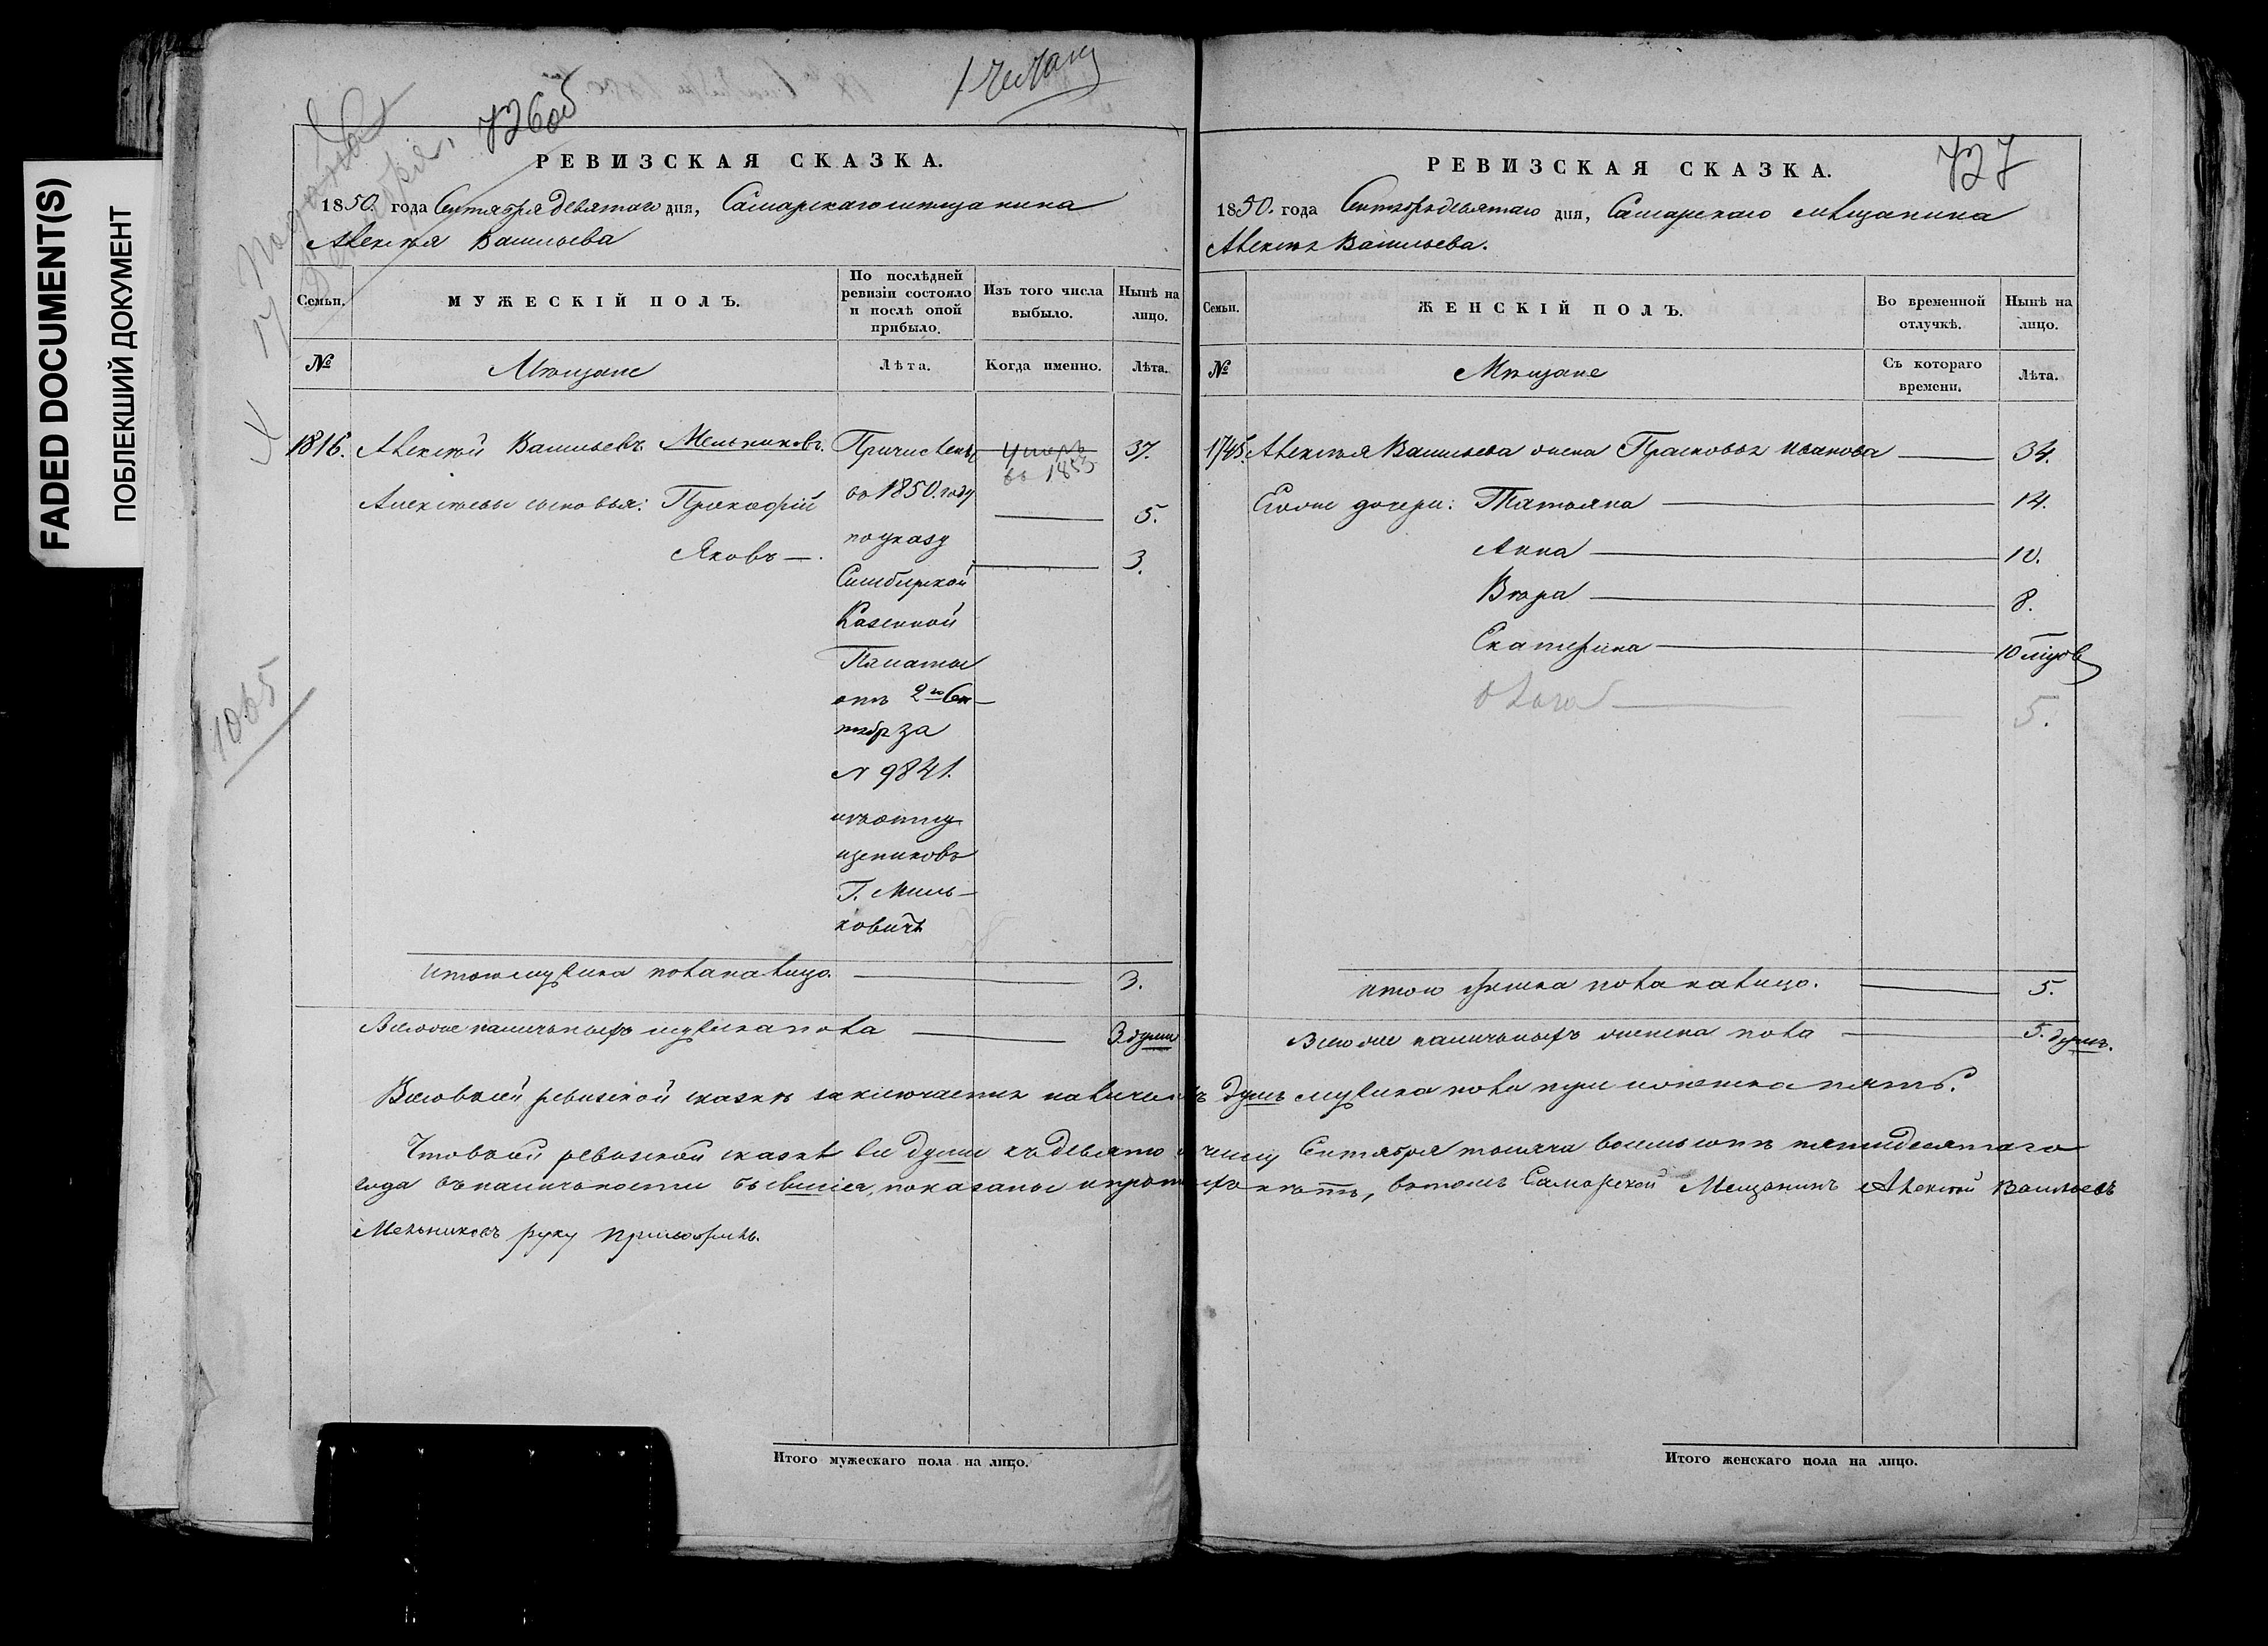 FADED DOCUMENT(S)
ПОБЛЕКШИЙ ДОКУМЕНТ
726об
РЕВИЗСКАЯ СКАЗКА.
1850. года Сентября девятаго дня, Самарскаго мещанина
Алексея Васильева
Семьи.
МУЖЕСКІЙ ПОЛЪ.
По послѣдней ревизіи состояло и послѣ оной прибыло.
Изъ того числа выбыло.
Нынѣ на лицо.
№
Мѣщане
Лѣта.
Когда именно.
Лѣта.
1816. Алексѣй Васильевъ Мельниковъ. Причисленъ умеръ въ 1853 37.
Алексѣевы сыновья: Прокофій во 1850. году 5.
Яковъ 3.
по указу
Симбирской
Казенной
Палаты
отъ 2го Сен-
тябр за
N 9841.
изъ отпу
щениковъ
Г. Миль-
ковичъ
Итого мужска пола на лицо. 3.
Всего наличныхъ мужска пола 3 души
1065
727
РЕВИЗСКАЯ СКАЗКА.
1850. года Сентябрь девятаго дня, Самарскаго мѣщанина
Алексѣя Васильева.
Семьи.
ЖЕНСКІЙ ПОЛЪ.
Во временной отлучкѣ.
Нынѣ на лицо.
№
Мѣщане
Съ котораго времени.
Лѣта.
1745. Алексѣя Васильева жена Прасковья Иванова 34.
Его же дочери: Татьяна 14.
Анна 10.
Вѣра 8.
Екатерина 10 мѣсов
5.
Итого женска пола на лицо. 5.
Всего же наличныхъ женска пола 5. душъ.
Всего въ сей ревизской сказкѣ заключается наличныхъ душъ мужска пола три и женска пять.
Что въ сей ревизской сказкѣ все души къ девятому числу Сентября тысяча восемьсотъ пятидесятаго
года въ наличности бывшія, показаны и прописныхъ нѣтъ, въ томъ Самарской Мещанинъ Алексѣй Васильевъ
Мельниковъ руку приложилъ.
Итого мужескаго пола на лицо.
Итого женскаго пола на лицо.